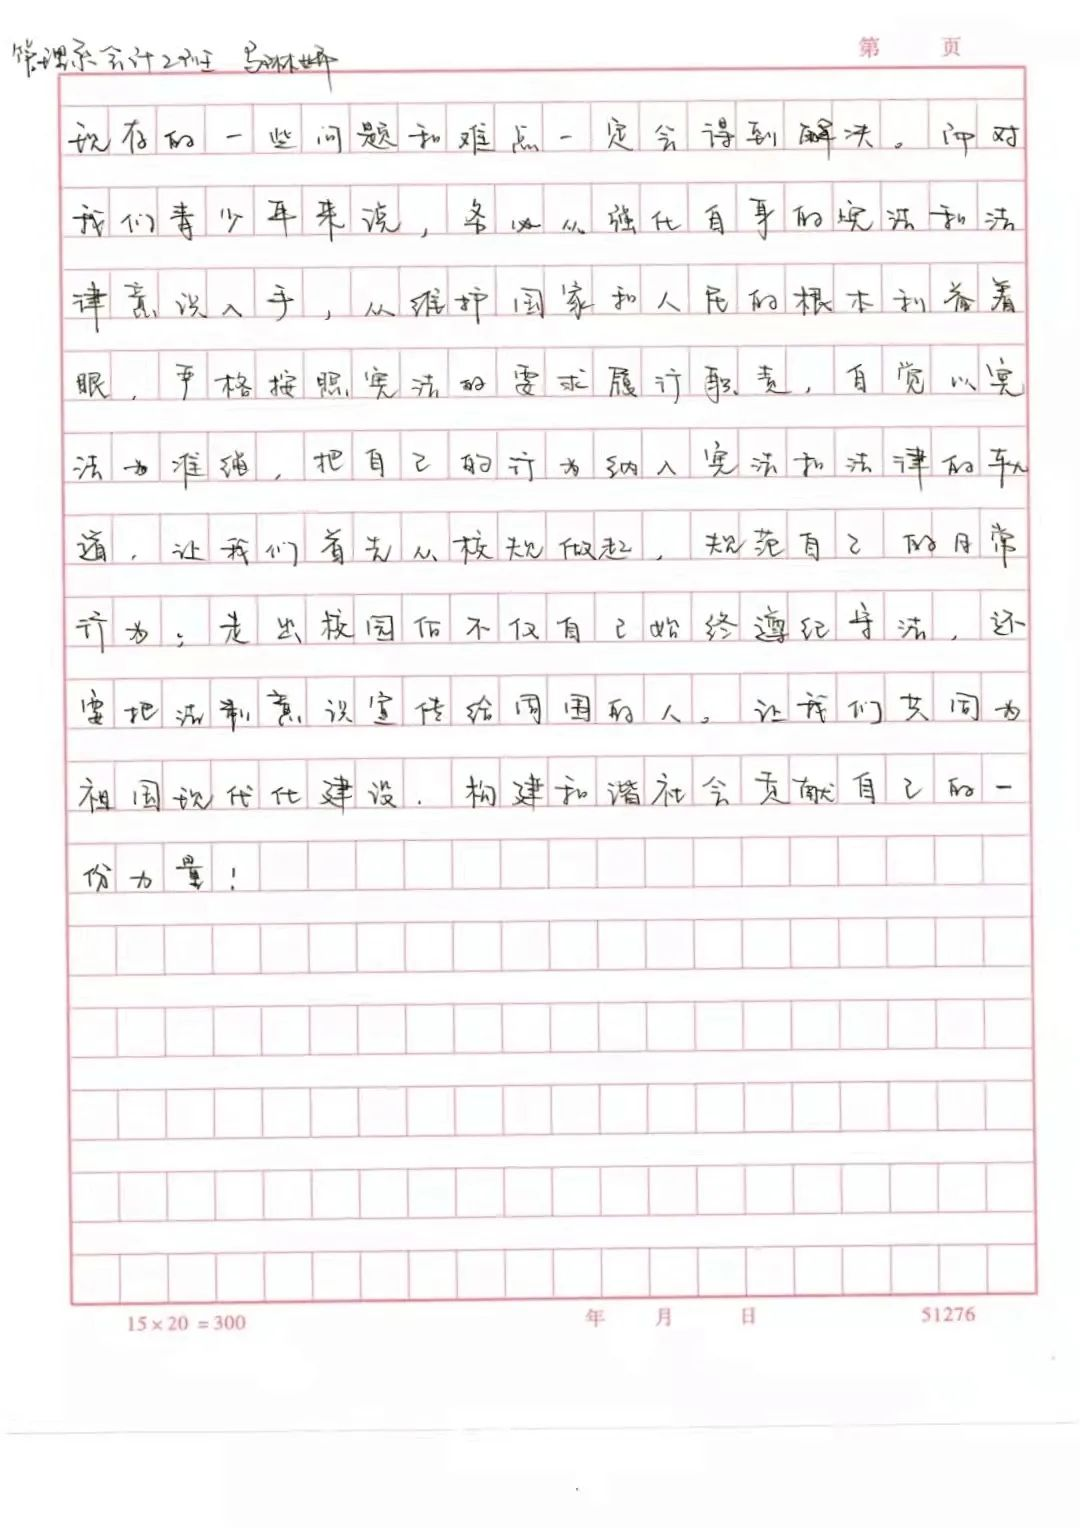 管理系会计2班 马琳娉
第 页
现存的一些问题和难点一定会得到解决。而对
我们青少年来说,务必从强化自身的宪法和法
律意识入手,从维护国家和人民的根本利益着
眼,严格按照宪法的要求履行职责,自觉以宪
法为准绳,把自己的行为纳入宪法和法律的轨
道,让我们首先从校规做起,规范自己的日常
行为;走出校园后不仅自己始终遵纪守法,还
要把法制意识宣传给周围的人。让我们共同为
祖国现代化建设,构建和谐社会贡献自己的一
份力量!
15×20=300 年 月 日 51276